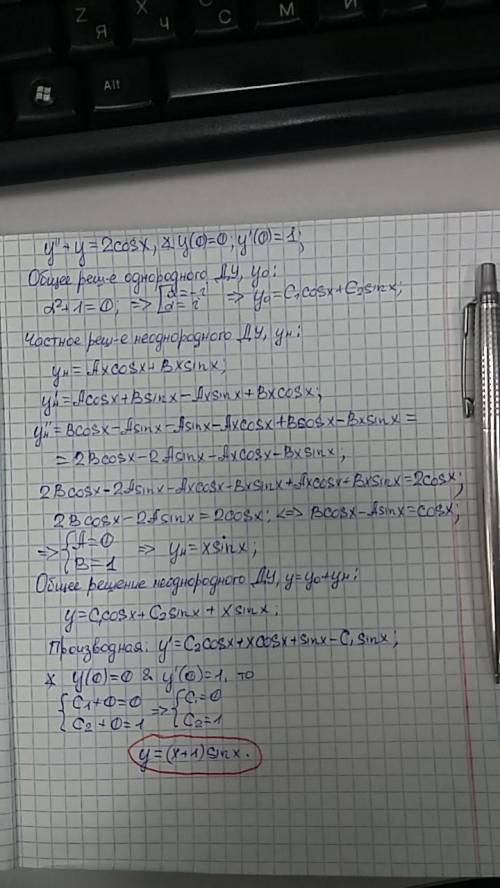 Z Я
X Ч
C С
M
Alt
y''+y=2cosx, ∡ y(0)=0; y'(0)=1;
Общее реш-е однородного ДУ, y₀:
α²+1=0; => [α=-i α=i => y₀=C₁cosx+C₂sinx;
Частное реш-е неоднородного ДУ, yн:
yн=Axcosx+Bxsinx;
y'н=Acosx+Bsinx-Axsinx+Bxcosx;
y''н=Bcosx-Asinx-Asinx-Axcosx+Bcosx-Bxsinx=
=2Bcosx-2Asinx-Axcosx-Bxsinx;
2Bcosx-2Asinx-Axcosx-Bxsinx+Axcosx+Bxsinx=2cosx;
2Bcosx-2Asinx=2cosx; <=> Bcosx-Asinx=cosx;
=> {A=0 B=1 => yн=xsinx;
Общее решение неоднородного ДУ, y=y₀+yн:
y=C₁cosx+C₂sinx+xsinx;
Производная: y'=C₂cosx+xcosx+sinx-C₁sinx;
∡ y(0)=0 & y'(0)=1, то
{C₁+0=0 C₂+0=1 => {C₁=0 C₂=1
y=(x+1)sinx.